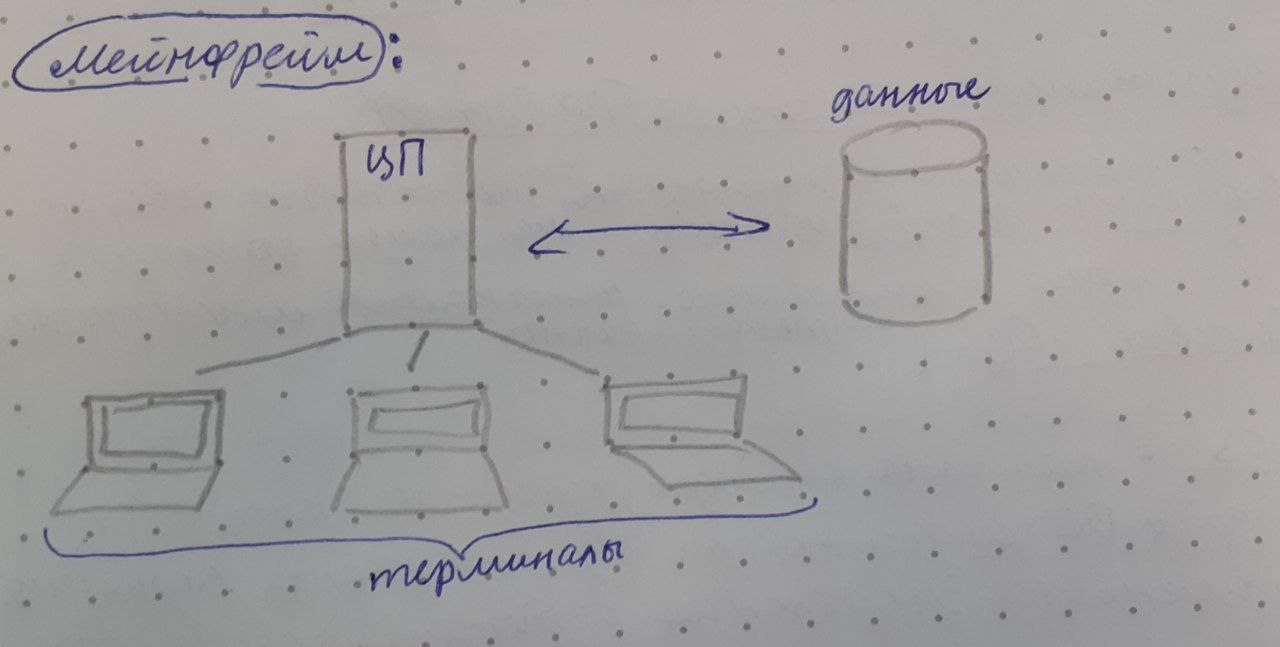 мейнфрейм:
данные
ЦП
терминалы